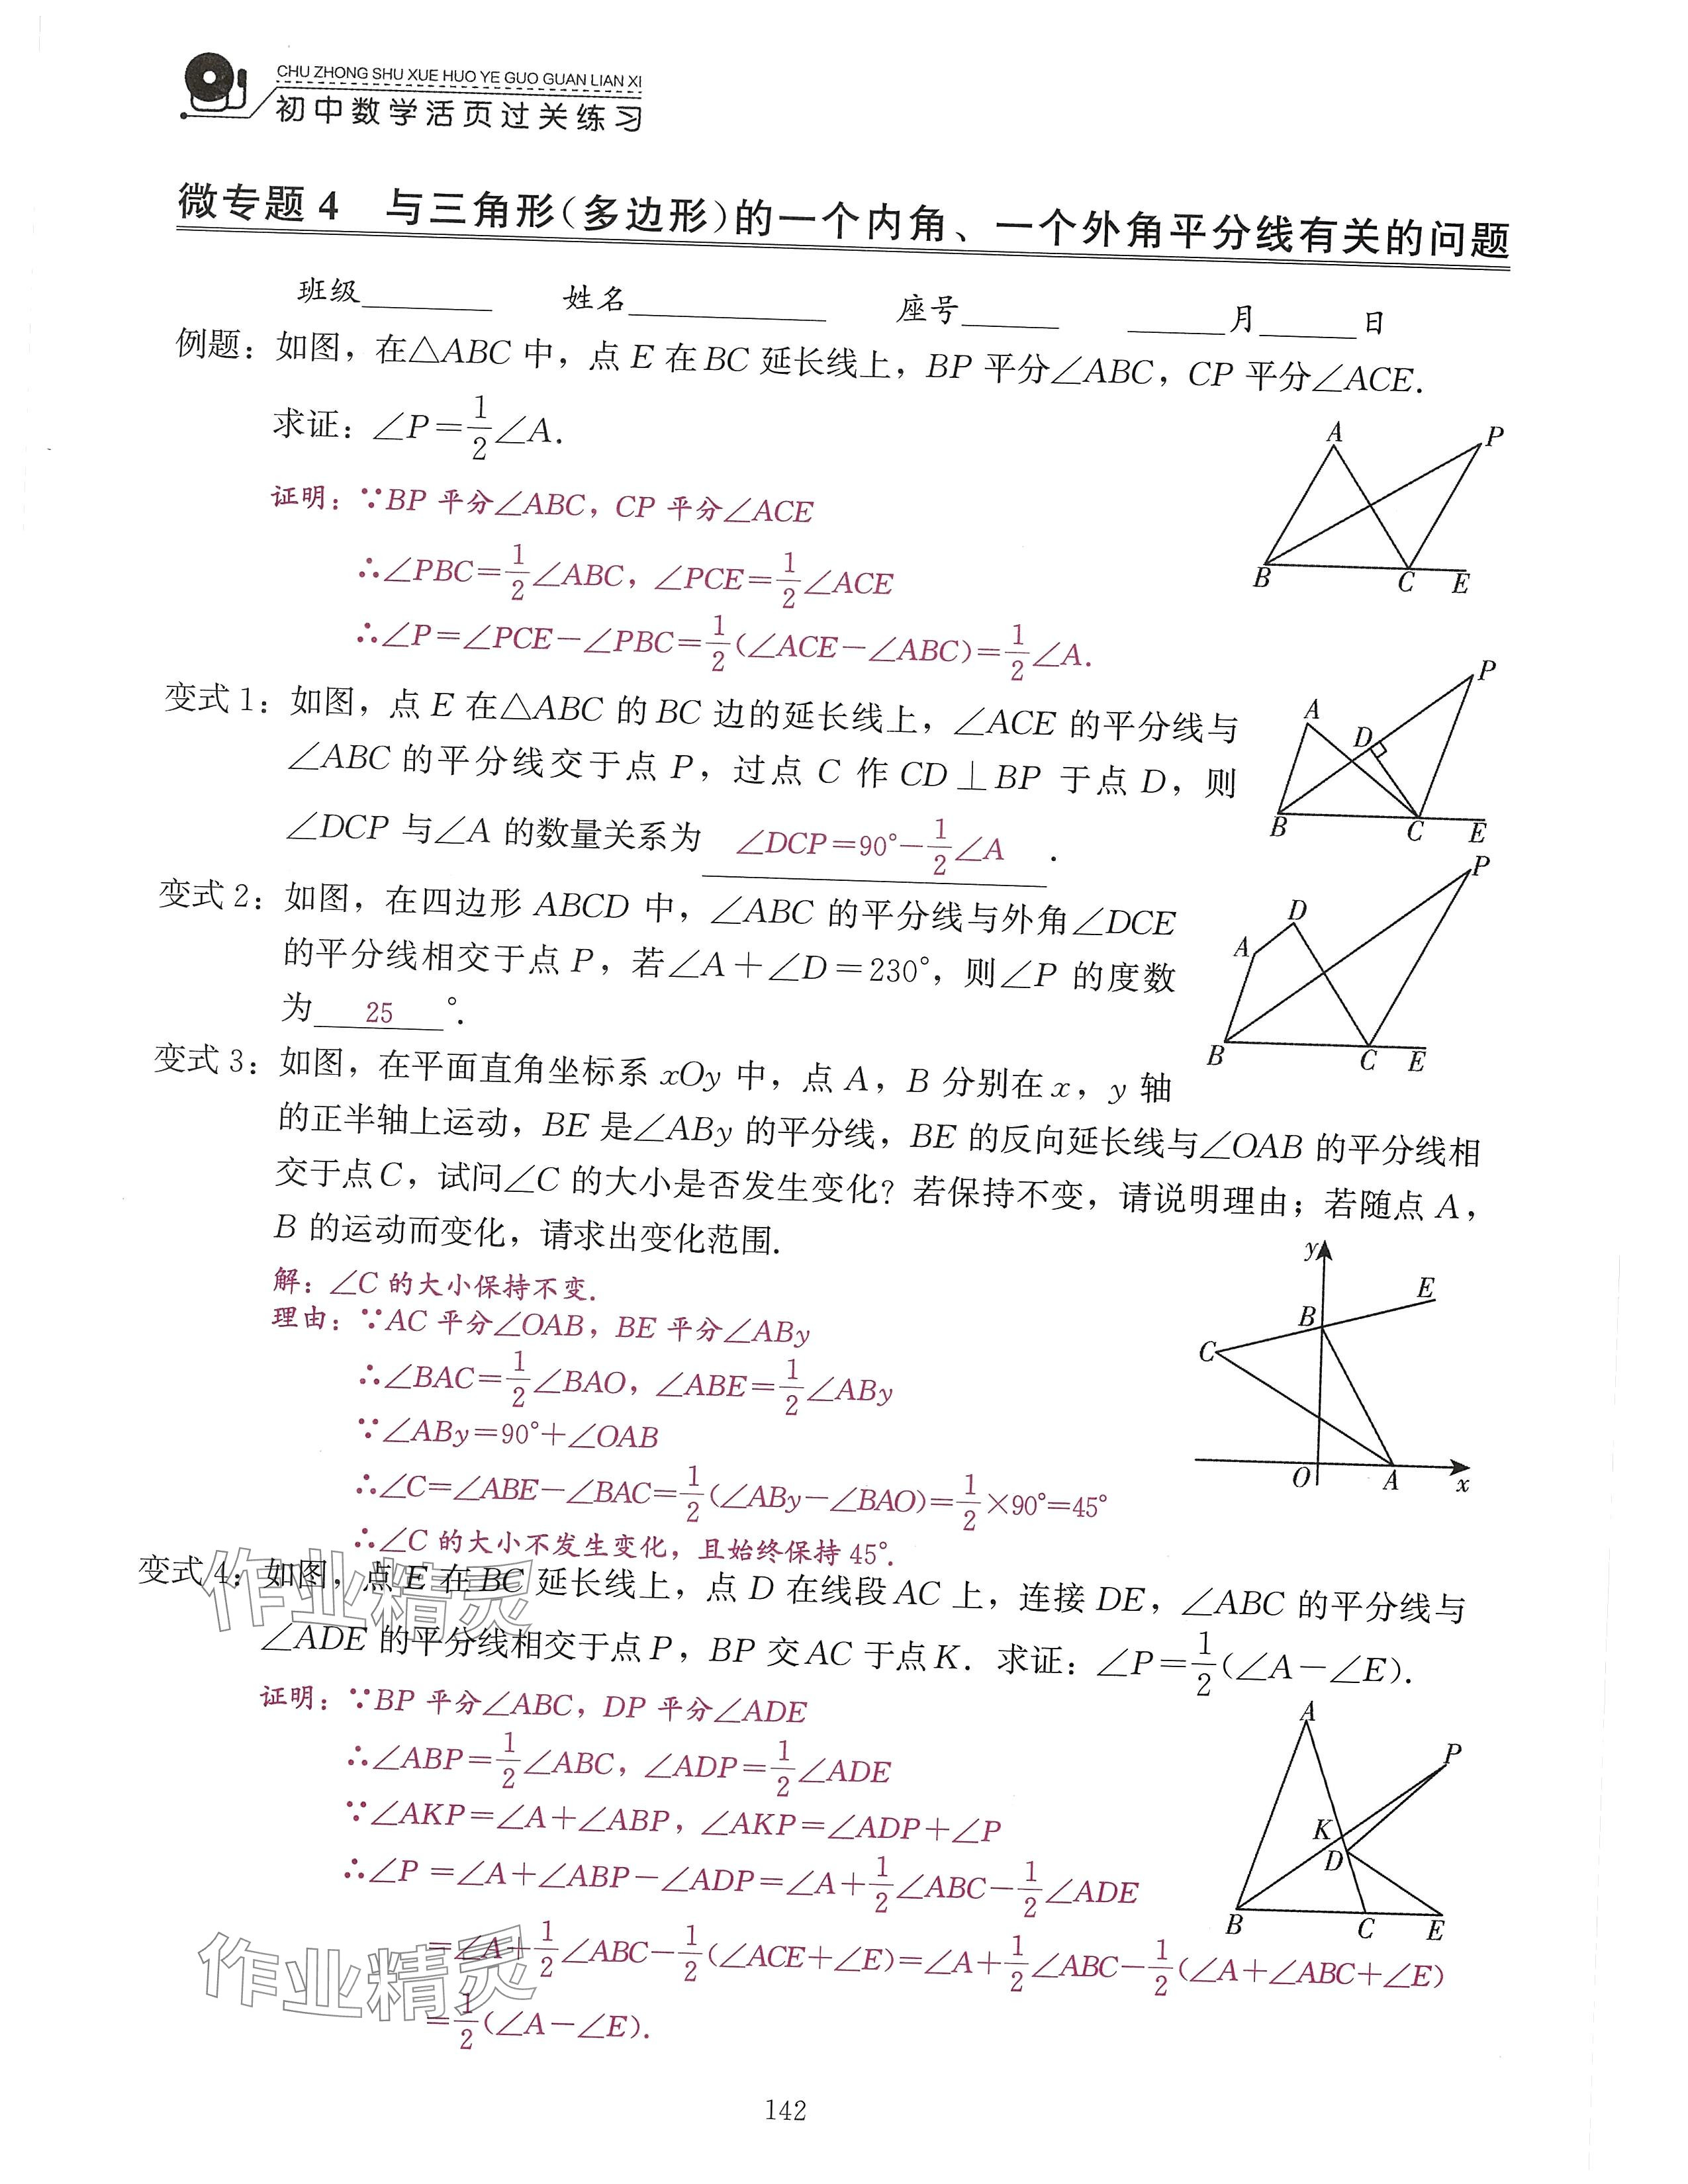 CHU ZHONG SHU XUE HUO YE GUO GUAN LIAN XI
初中数学活页过关练习
微专题4 与三角形(多边形)的一个内角、一个外角平分线有关的问题
班级 姓名 座号 月 日
例题：如图，在△ABC 中，点 E 在 BC 延长线上，BP 平分∠ABC，CP 平分∠ACE.
求证：∠P=1/2∠A.
证明：∵BP 平分∠ABC，CP 平分∠ACE
∴∠PBC=1/2∠ABC，∠PCE=1/2∠ACE
∴∠P=∠PCE−∠PBC=1/2(∠ACE−∠ABC)=1/2∠A.
A P B C E
变式1：如图，点 E 在△ABC 的 BC 边的延长线上，∠ACE 的平分线与
∠ABC 的平分线交于点 P，过点 C 作 CD⊥BP 于点 D，则
∠DCP 与∠A 的数量关系为 ∠DCP=90°−1/2∠A .
A D P B C E
变式2：如图，在四边形 ABCD 中，∠ABC 的平分线与外角∠DCE
的平分线相交于点 P，若∠A+∠D=230°，则∠P 的度数
为 25 °.
A D P B C E
变式3：如图，在平面直角坐标系 xOy 中，点 A，B 分别在 x，y 轴
的正半轴上运动，BE 是∠ABy 的平分线，BE 的反向延长线与∠OAB 的平分线相
交于点C，试问∠C 的大小是否发生变化？若保持不变，请说明理由；若随点 A，
B 的运动而变化，请求出变化范围.
解：∠C 的大小保持不变.
理由：∵AC 平分∠OAB，BE 平分∠ABy
∴∠BAC=1/2∠BAO，∠ABE=1/2∠ABy
∵∠ABy=90°+∠OAB
∴∠C=∠ABE−∠BAC=1/2(∠ABy−∠BAO)=1/2×90°=45°
∴∠C 的大小不发生变化，且始终保持 45°.
y E B C O A x
变式4：如图，点 E 在 BC 延长线上，点 D 在线段 AC 上，连接 DE，∠ABC 的平分线与
∠ADE 的平分线相交于点 P，BP 交 AC 于点 K. 求证：∠P=1/2(∠A−∠E).
证明：∵BP 平分∠ABC，DP 平分∠ADE
∴∠ABP=1/2∠ABC，∠ADP=1/2∠ADE
∵∠AKP=∠A+∠ABP，∠AKP=∠ADP+∠P
∴∠P =∠A+∠ABP−∠ADP=∠A+1/2∠ABC−1/2∠ADE
=∠A+1/2∠ABC−1/2(∠ACE+∠E)=∠A+1/2∠ABC−1/2(∠A+∠ABC+∠E)
=1/2(∠A−∠E).
A P K D B C E
作业精灵
作业精灵
142